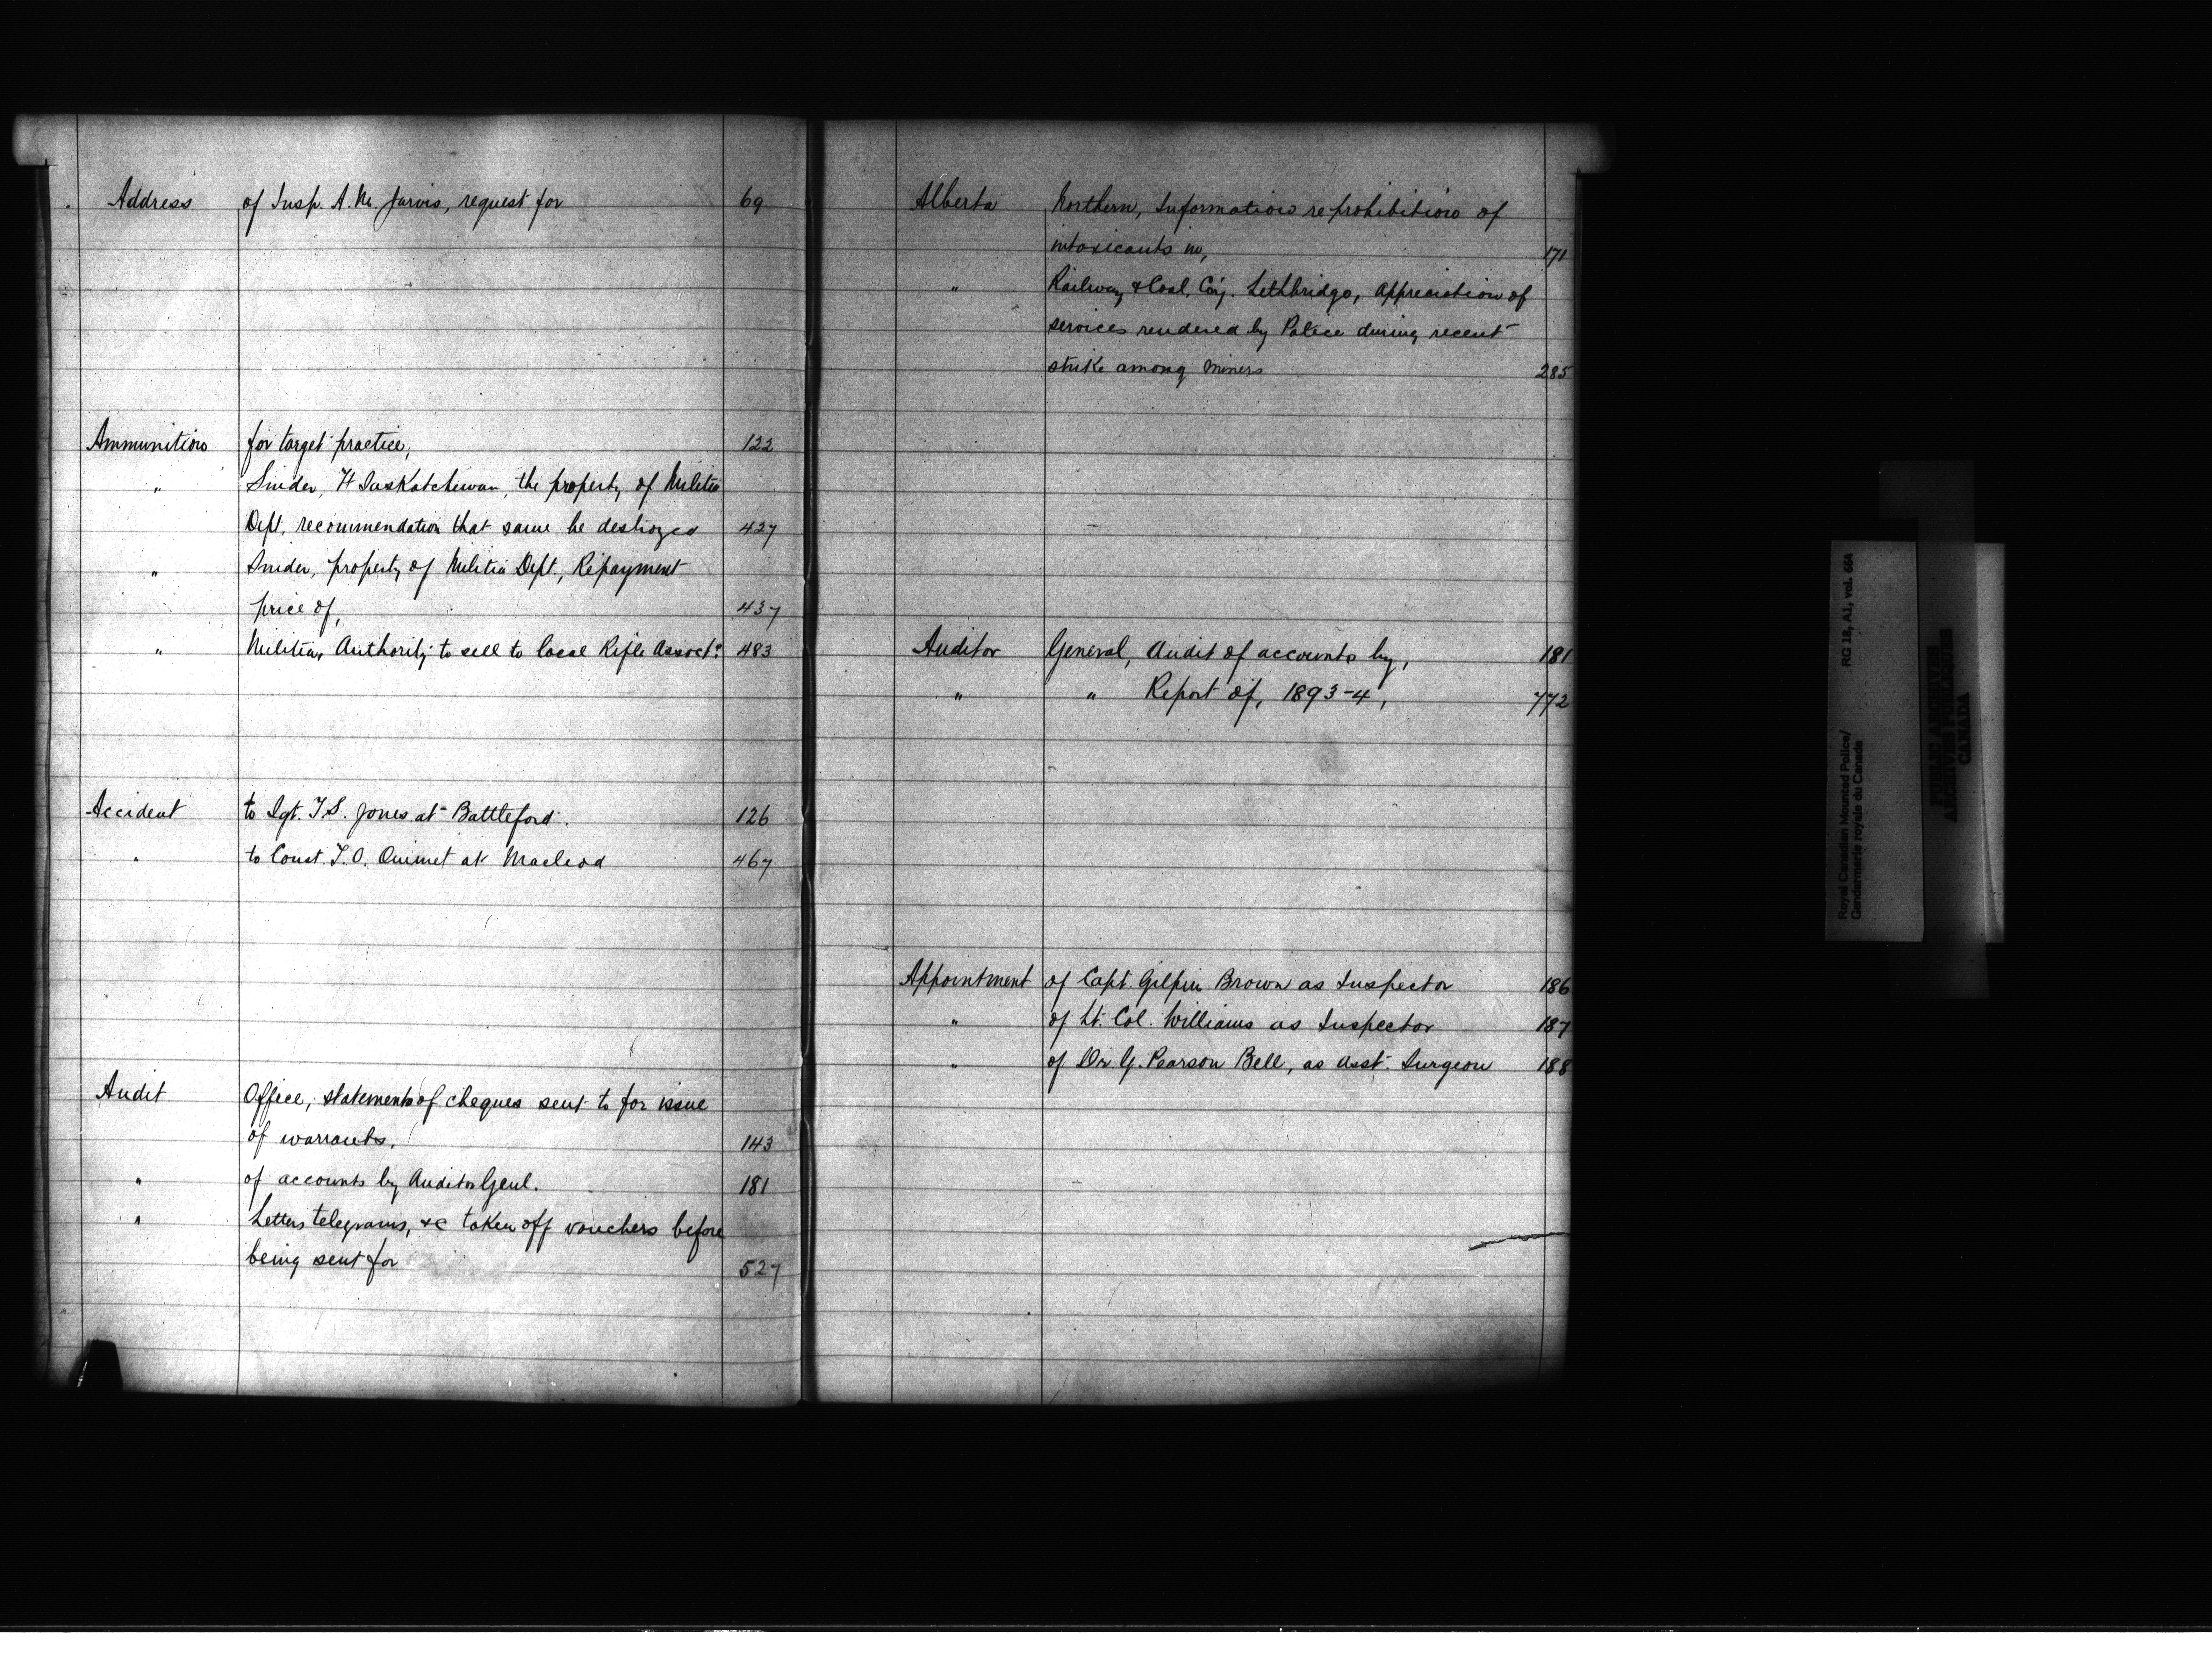 Address of Insp. A. M. Jarvis, request for 69
Ammunition for target practice, 122
" Snider, Ft Saskatchewan, the property of Militia
Dept, recommendation that same be destroyed 427
" Snider, property of Militia Dept, Repayment
price of, 437
" Militia, Authority to sell to local Rifle Assoctn 483
Accident to Sgt. T.S. Jones at Battleford. 126
" to Const. T. O. Ouimet at Macleod 467
Audit Office, statements of cheques sent to for issue
of warrants. 143
" of accounts by Auditor Genl. 181
" Letters telegrams, &c taken off vouchers before
being sent for 527
Alberta Northern, Information re prohibition of
intoxicants in, 171
" Railway & Coal, Coy. Lethbridge, Appreciation of
services rendered by Police during recent
strike among miners 285
Auditor General, Audit of accounts by, 181
" " Report of, 1893-4, 772
Appointment of Capt. Gilpin Brown as Inspector 186
" of Lt. Col. Williams as Inspector 187
" of Dr G. Pearson Bell, as Asst. Surgeon 188
Royal Canadian Mounted Police/
Gendarmerie royale du Canada
RG 18, A1, vol. 654
PUBLIC ARCHIVES
ARCHIVES PUBLIQUES
CANADA